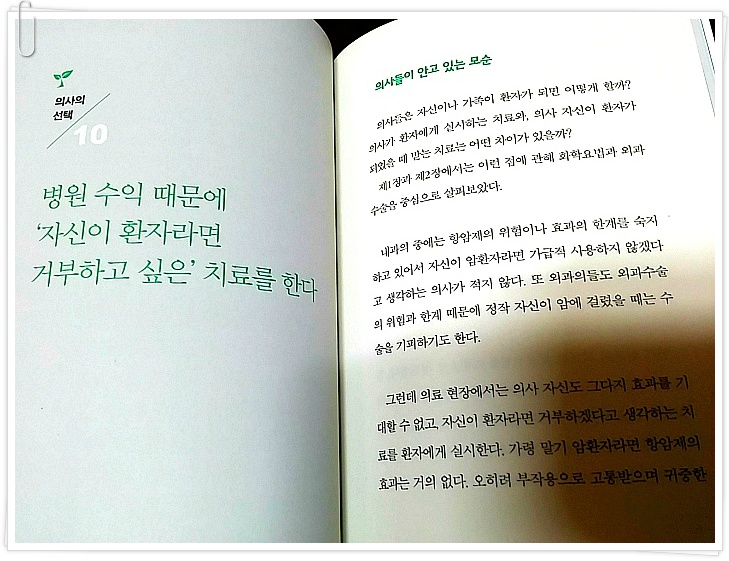 의사의
선택
10
병원 수익 때문에
‘자신이 환자라면
거부하고 싶은’ 치료를 한다
의사들이 안고 있는 모순
의사들은 자신이나 가족이 환자가 되면 어떻게 할까?
의사가 환자에게 실시하는 치료와, 의사 자신이 환자가
되었을 때 받는 치료는 어떤 차이가 있을까?
제1장과 제2장에서는 이런 점에 관해 화학요법과 외과
수술을 중심으로 살펴보았다.
내과의 중에는 항암제의 위험이나 효과의 한계를 숙지
하고 있어서 자신이 암환자라면 가급적 사용하지 않겠다
고 생각하는 의사가 적지 않다. 또 외과의들도 외과수술
의 위험과 한계 때문에 정작 자신이 암에 걸렸을 때는 수
술을 기피하기도 한다.
그런데 의료 현장에서는 의사 자신도 그다지 효과를 기
대할 수 없고, 자신이 환자라면 거부하겠다고 생각하는 치
료를 환자에게 실시한다. 가령 말기 암환자라면 항암제의
효과는 거의 없다. 오히려 부작용으로 고통받으며 귀중한